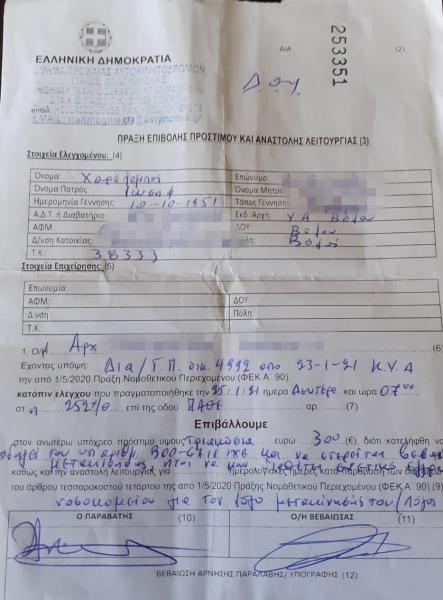 ΕΛΛΗΝΙΚΗ ΔΗΜΟΚΡΑΤΙΑ
Α/Α
253351
(2)
ΤΜΗΜΑ ΤΡΟΧΑΙΑΣ ΑΥΤΟΚΙΝΗΤΟΔΡΟΜΩΝ
Δ.Ο.Υ
ΠΡΑΞΗ ΕΠΙΒΟΛΗΣ ΠΡΟΣΤΙΜΟΥ ΚΑΙ ΑΝΑΣΤΟΛΗΣ ΛΕΙΤΟΥΡΓΙΑΣ (3)
Στοιχεία Ελεγχομένου: (4)
Όνομα: Χαραλαμπος Επώνυμο:
Όνομα Πατρός: Ιωσηφ Όνομα Μητρος:
Ημερομηνία Γέννησης: 10-10-1951 Τόπος Γέννησης:
Α.Δ.Τ. ή Διαβατήριο Εκδ. Αρχή: Υ.Α Βόλου
ΑΦΜ: ΔΟΥ: Βόλου
Δ/νση Κατοικίας: Βόλος
Τ.Κ.: 38333
Στοιχεία Επιχείρησης (5)
Επωνυμία:
ΑΦΜ: ΔΟΥ:
Δ νση: Πολη:
Τ.Κ.:
1. Ο/Η Αρχ (6)
Έχοντας υπόψη: Δια/Γ.Π. οικ. 4992 απο 23-1-21 Κ.Υ.Α
την από 1/5/2020 Πράξη Νομοθετικού Περιεχομένου (ΦΕΚ Α΄ 90)
κατόπιν ελέγχου που πραγματοποιήθηκε την 25.1.21 ημέρα Δευτέρα και ώρα 07:00
στ η 252 χ/θ επί της οδού ΠΑΘΕ αρ. (7)
Επιβάλλουμε
στον ανωτέρω υπόχρεο πρόστιμο ύψους τριακόσια ευρώ 300 (€), διότι κατελήφθη να
οδηγεί το υπ αριθμ. ΙΧΕ και να στερείται
μετακίνησης ητοι να μην
καθώς και την αναστολή λειτουργίας για ημερολογιακές ημέρες, κατά παράβαση των διατάξεων
του άρθρου τεσσαρακοστού τετάρτου της από 1/5/2020 Πράξης Νομοθετικού Περιεχομένου (ΦΕΚ Α 90).(9)
νοσοκομείου για τον λόγο μετακίνησης του / λόγος
Ο ΠΑΡΑΒΑΤΗΣ (10) Ο/Η ΒΕΒΑΙΩΣΑΣ (11)
ΒΕΒΑΙΩΣΗ ΑΡΝΗΣΗΣ ΠΑΡΑΛΑΒΗΣ/ ΥΠΟΓΡΑΦΗΣ (12)